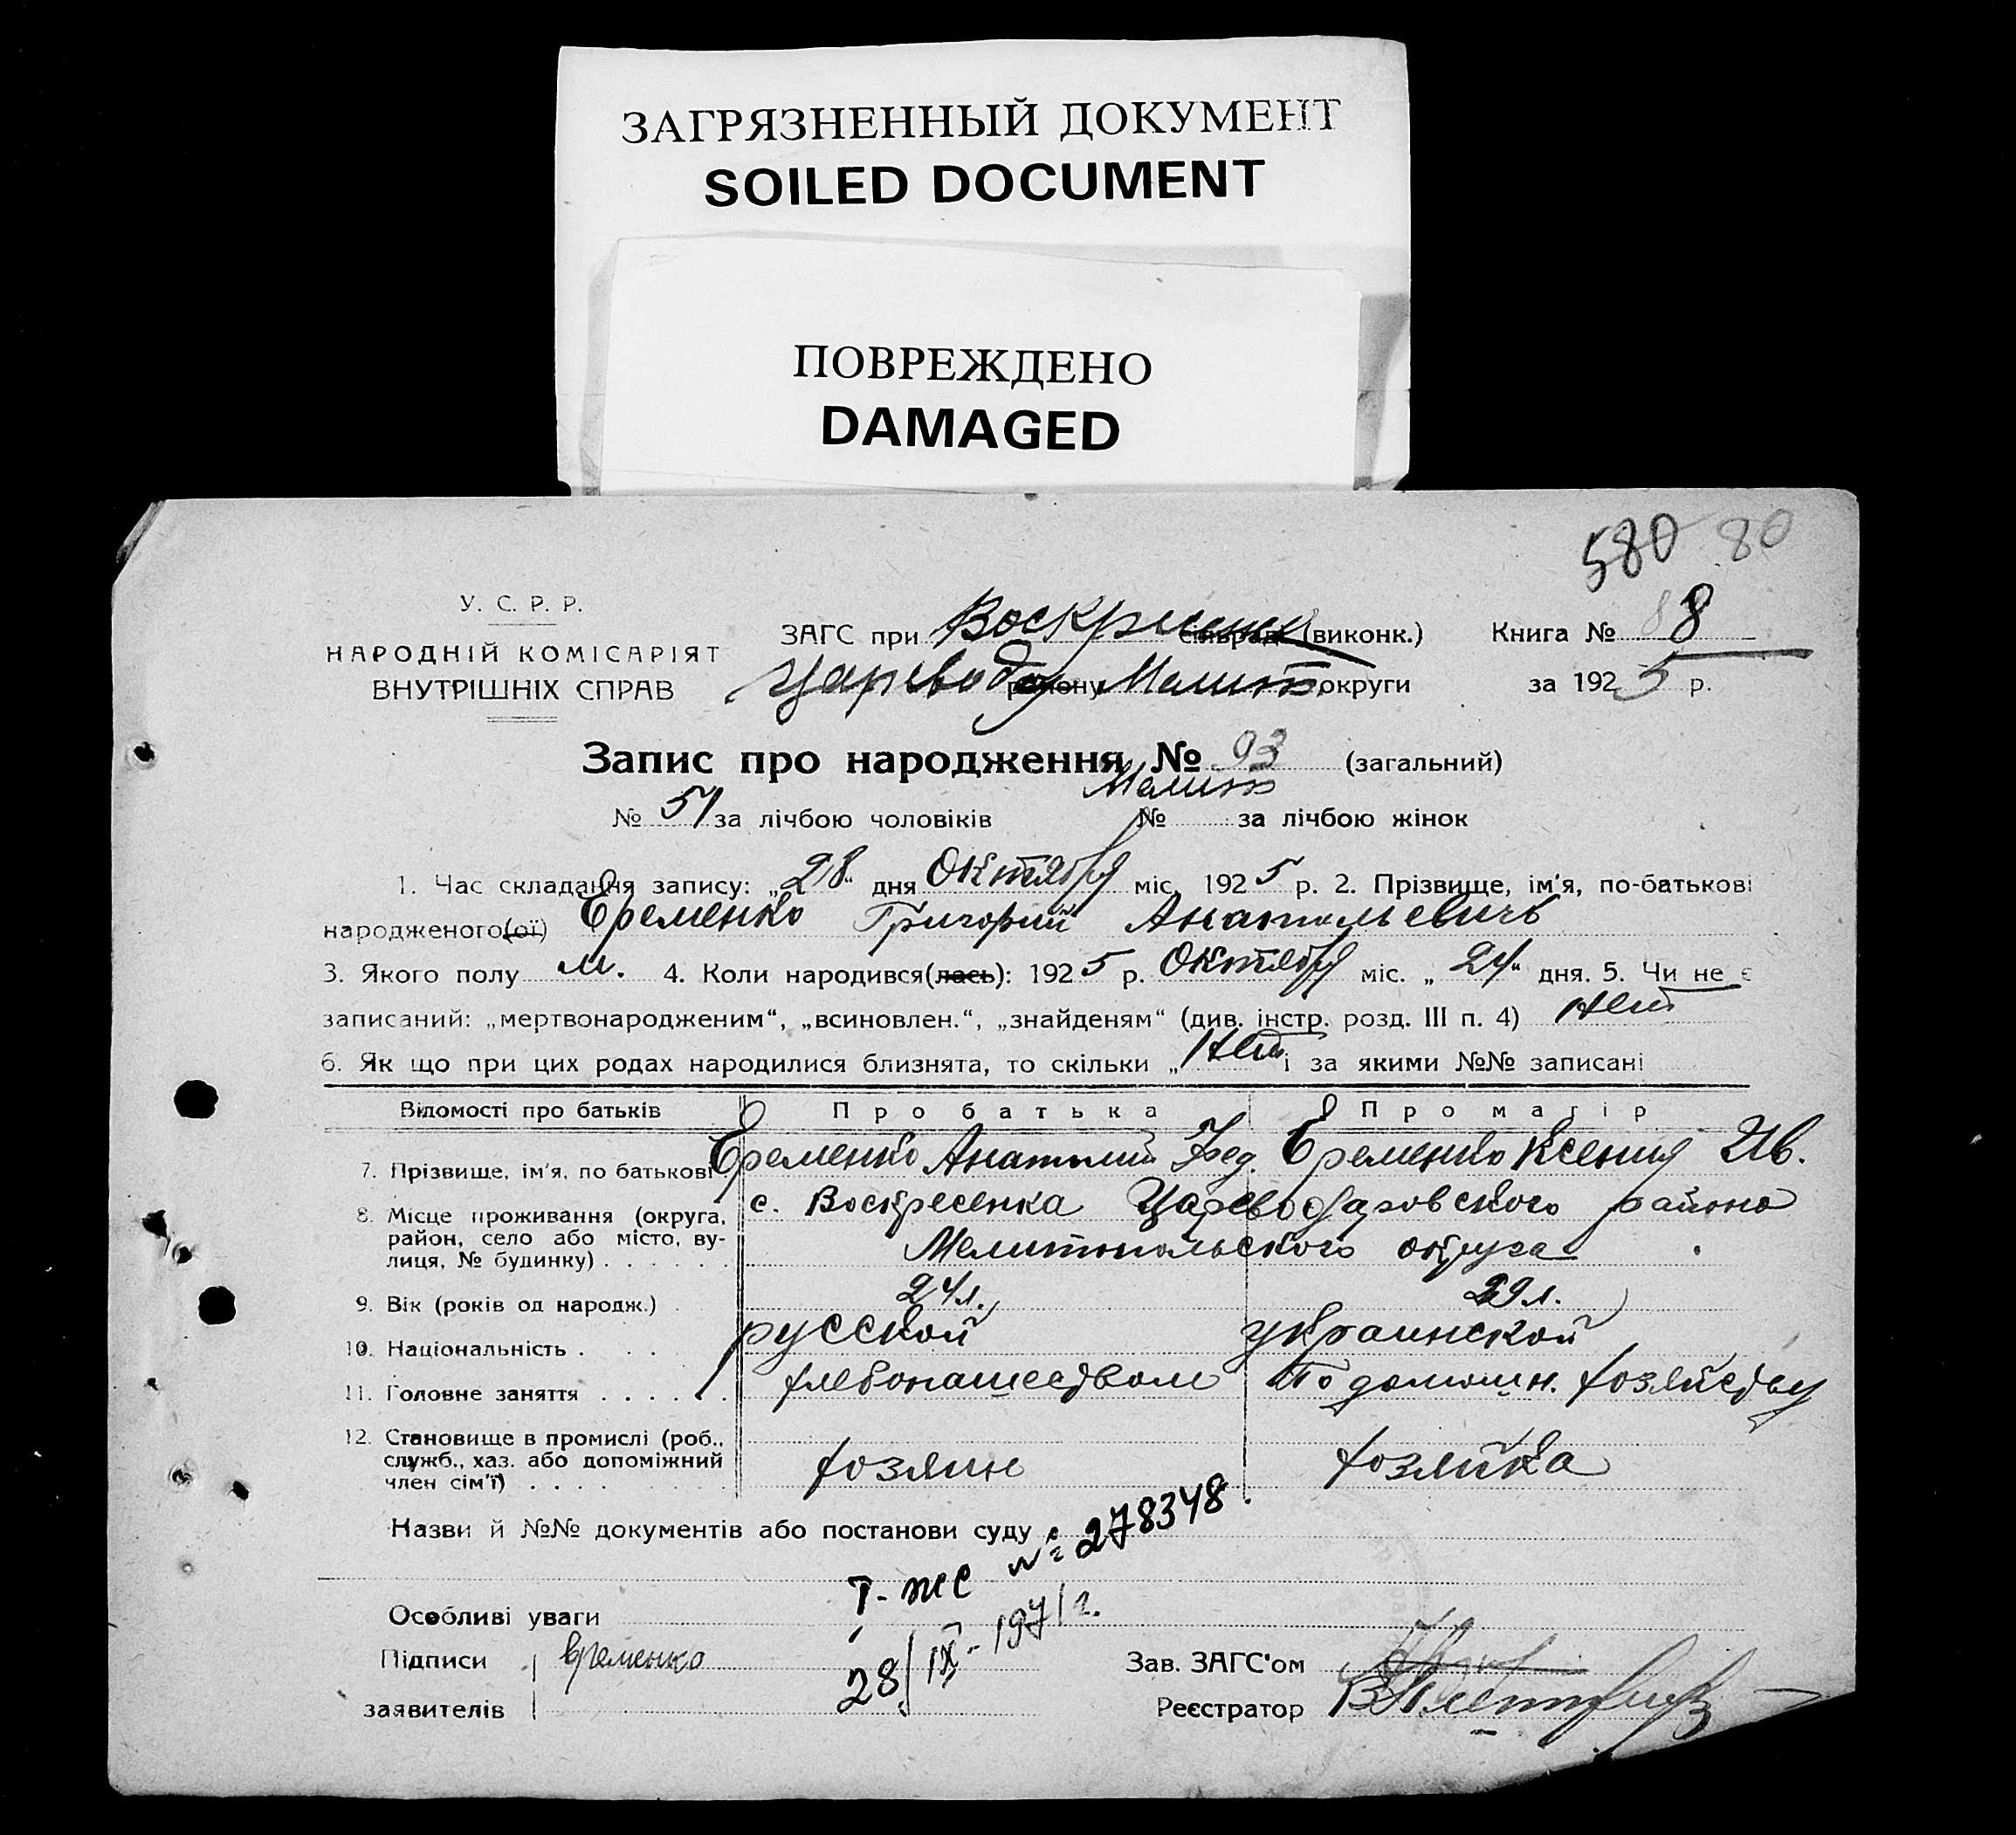 ЗАГРЯЗНЕННЫЙ ДОКУМЕНТ
SOILED DOCUMENT
ПОВРЕЖДЕНО
DAMAGED
580 80
У. С. Р. Р.
НАРОДНІЙ КОМІСАРІЯТ
ВНУТРІШНІХ СПРАВ
ЗАГС при (виконк.) Книга № 8
району Мелит. округи за 1925 р.
Запис про народження № 93 (загальний)
Мелит
№ 51 за лічбою чоловіків № за лічбою жінок
1. Час складання запису: „28“ дня Октября міс. 1925 р. 2. Прізвище, ім'я, по-батькові
народженого(ої) Еременко Григорий Анатольевичь
3. Якого полу м. 4. Коли народився(лась): 1925 р. Октября міс. „24“ дня. 5. Чи не є
записаний: „мертвонародженим“, „всиновлен.“, „знайденям“ (див. інстр. розд. III п. 4) Нет
6. Як що при цих родах народилися близнята, то скільки „Нет і за якими №№ записані
Відомості про батьків Про батька Про матір
7. Прізвище, ім'я, по батькові Еременко Анатолий Фед. Еременко Ксения Ив.
8. Місце проживання (округа, район, село або місто, вулиця, № будинку) с. Воскресенка Цареводаровского района
Мелитопольского округа
9. Вік (років од народж.) 24 л. 29 л.
10. Національність русской украинской
11. Головне заняття хлебопашеством По домашн. хозяйству
12. Становище в промислі (роб., служб., хаз. або допоміжний член сім'ї) хозяин хозяйка
Назви й №№ документів або постанови суду
I-жс № 278348
Особливі уваги
28/IX-1971 г.
Підписи заявителів Еременко
Зав. ЗАГС'ом
Реєстратор